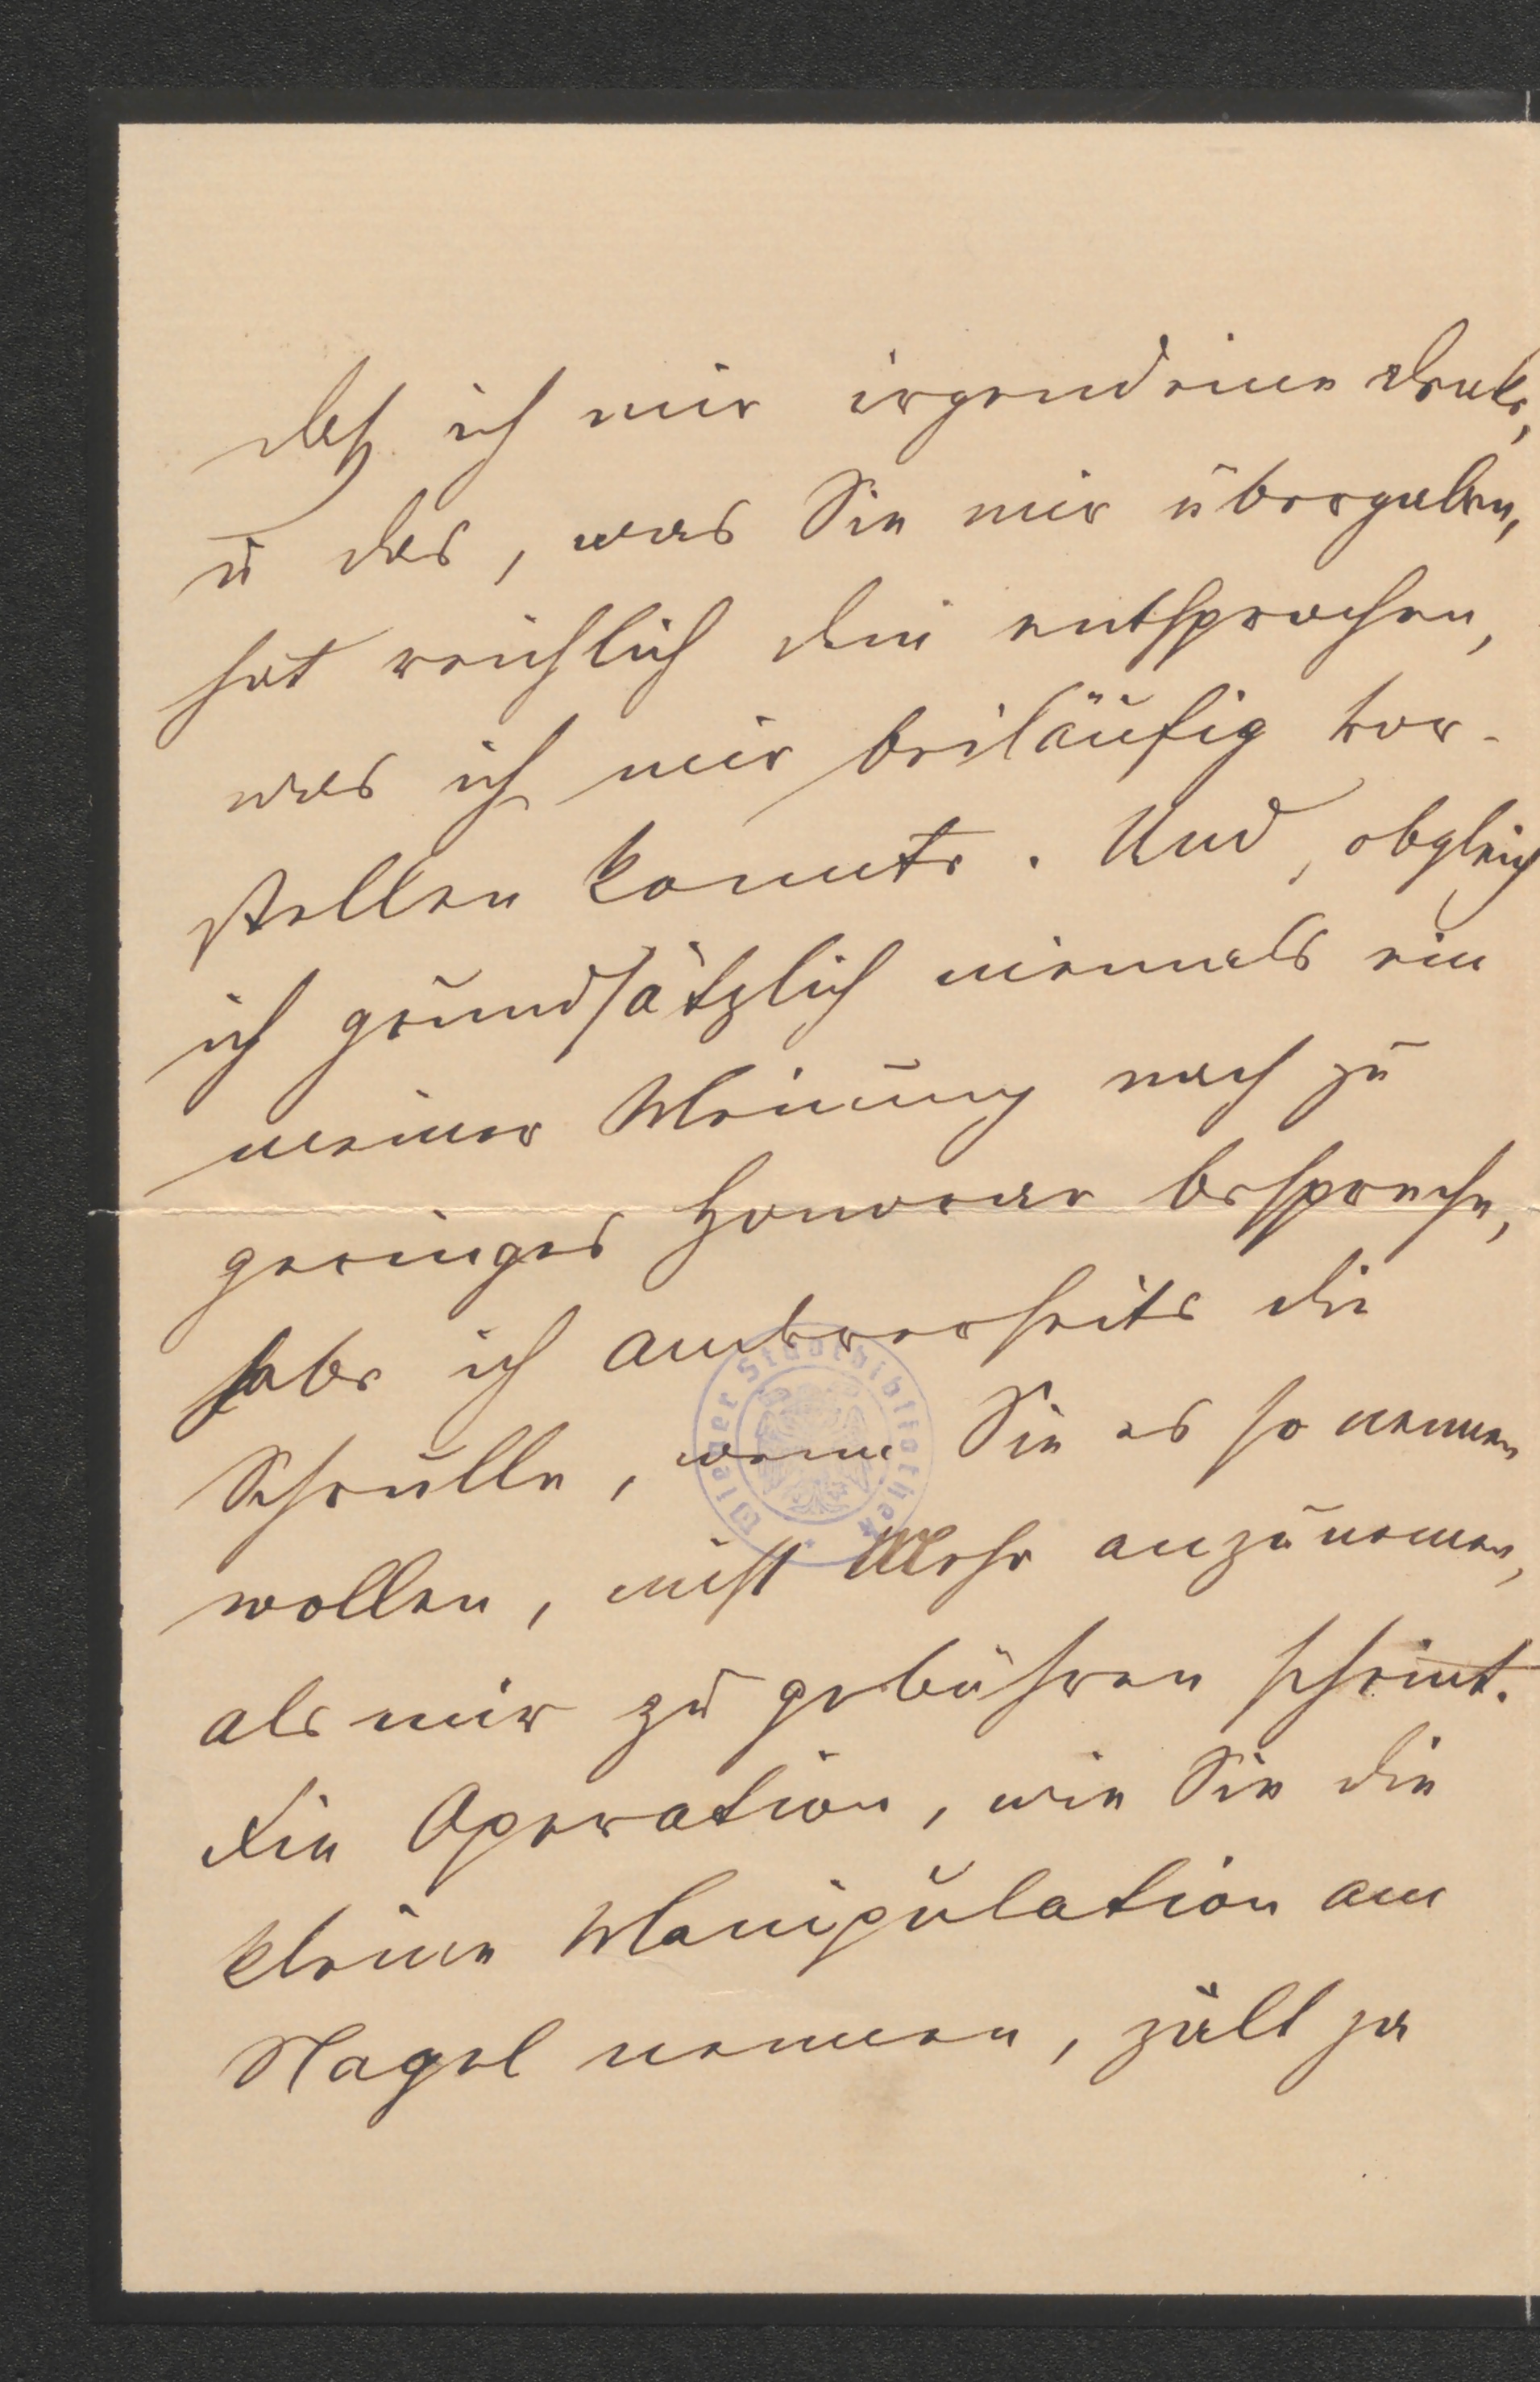 daß ich mir irgend eine denke,
u das, was Sie mir übergaben,
hat reichlich dem entsprochen,
was ich mir beiläufig vor-
stellen konnte. Und, obgleich
ich grundsätzlich niemals ein
meiner Meinung nach zu
geringes Honorar bespreche,
habe ich andererseits die
Schrulle, wenn Sie es so nennen
wollen, nicht Mehr anzunemen,
als mir zu gebühren scheint.
Die Operation, wie Sie die
kleine Manipulation am
Nagel nennen, zält ja
Wiener Stadtbibliothek